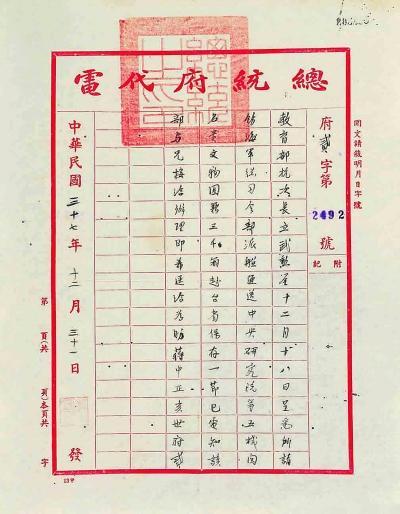 總統府代電
文請敘明月日字號
附記
府貳字第2492號
教育部杭次長立武勛鑒十二月十八日呈為所請
飭海軍總司令部派艦運送中央研究院等五機關
文物圖籍三千箱赴台省保存一節已電知該
部与兄接洽辦理即希逕洽為盼蔣中正亥世府貳
中華民國三十七年十二月三十一日發
第頁(共頁)本頁共字